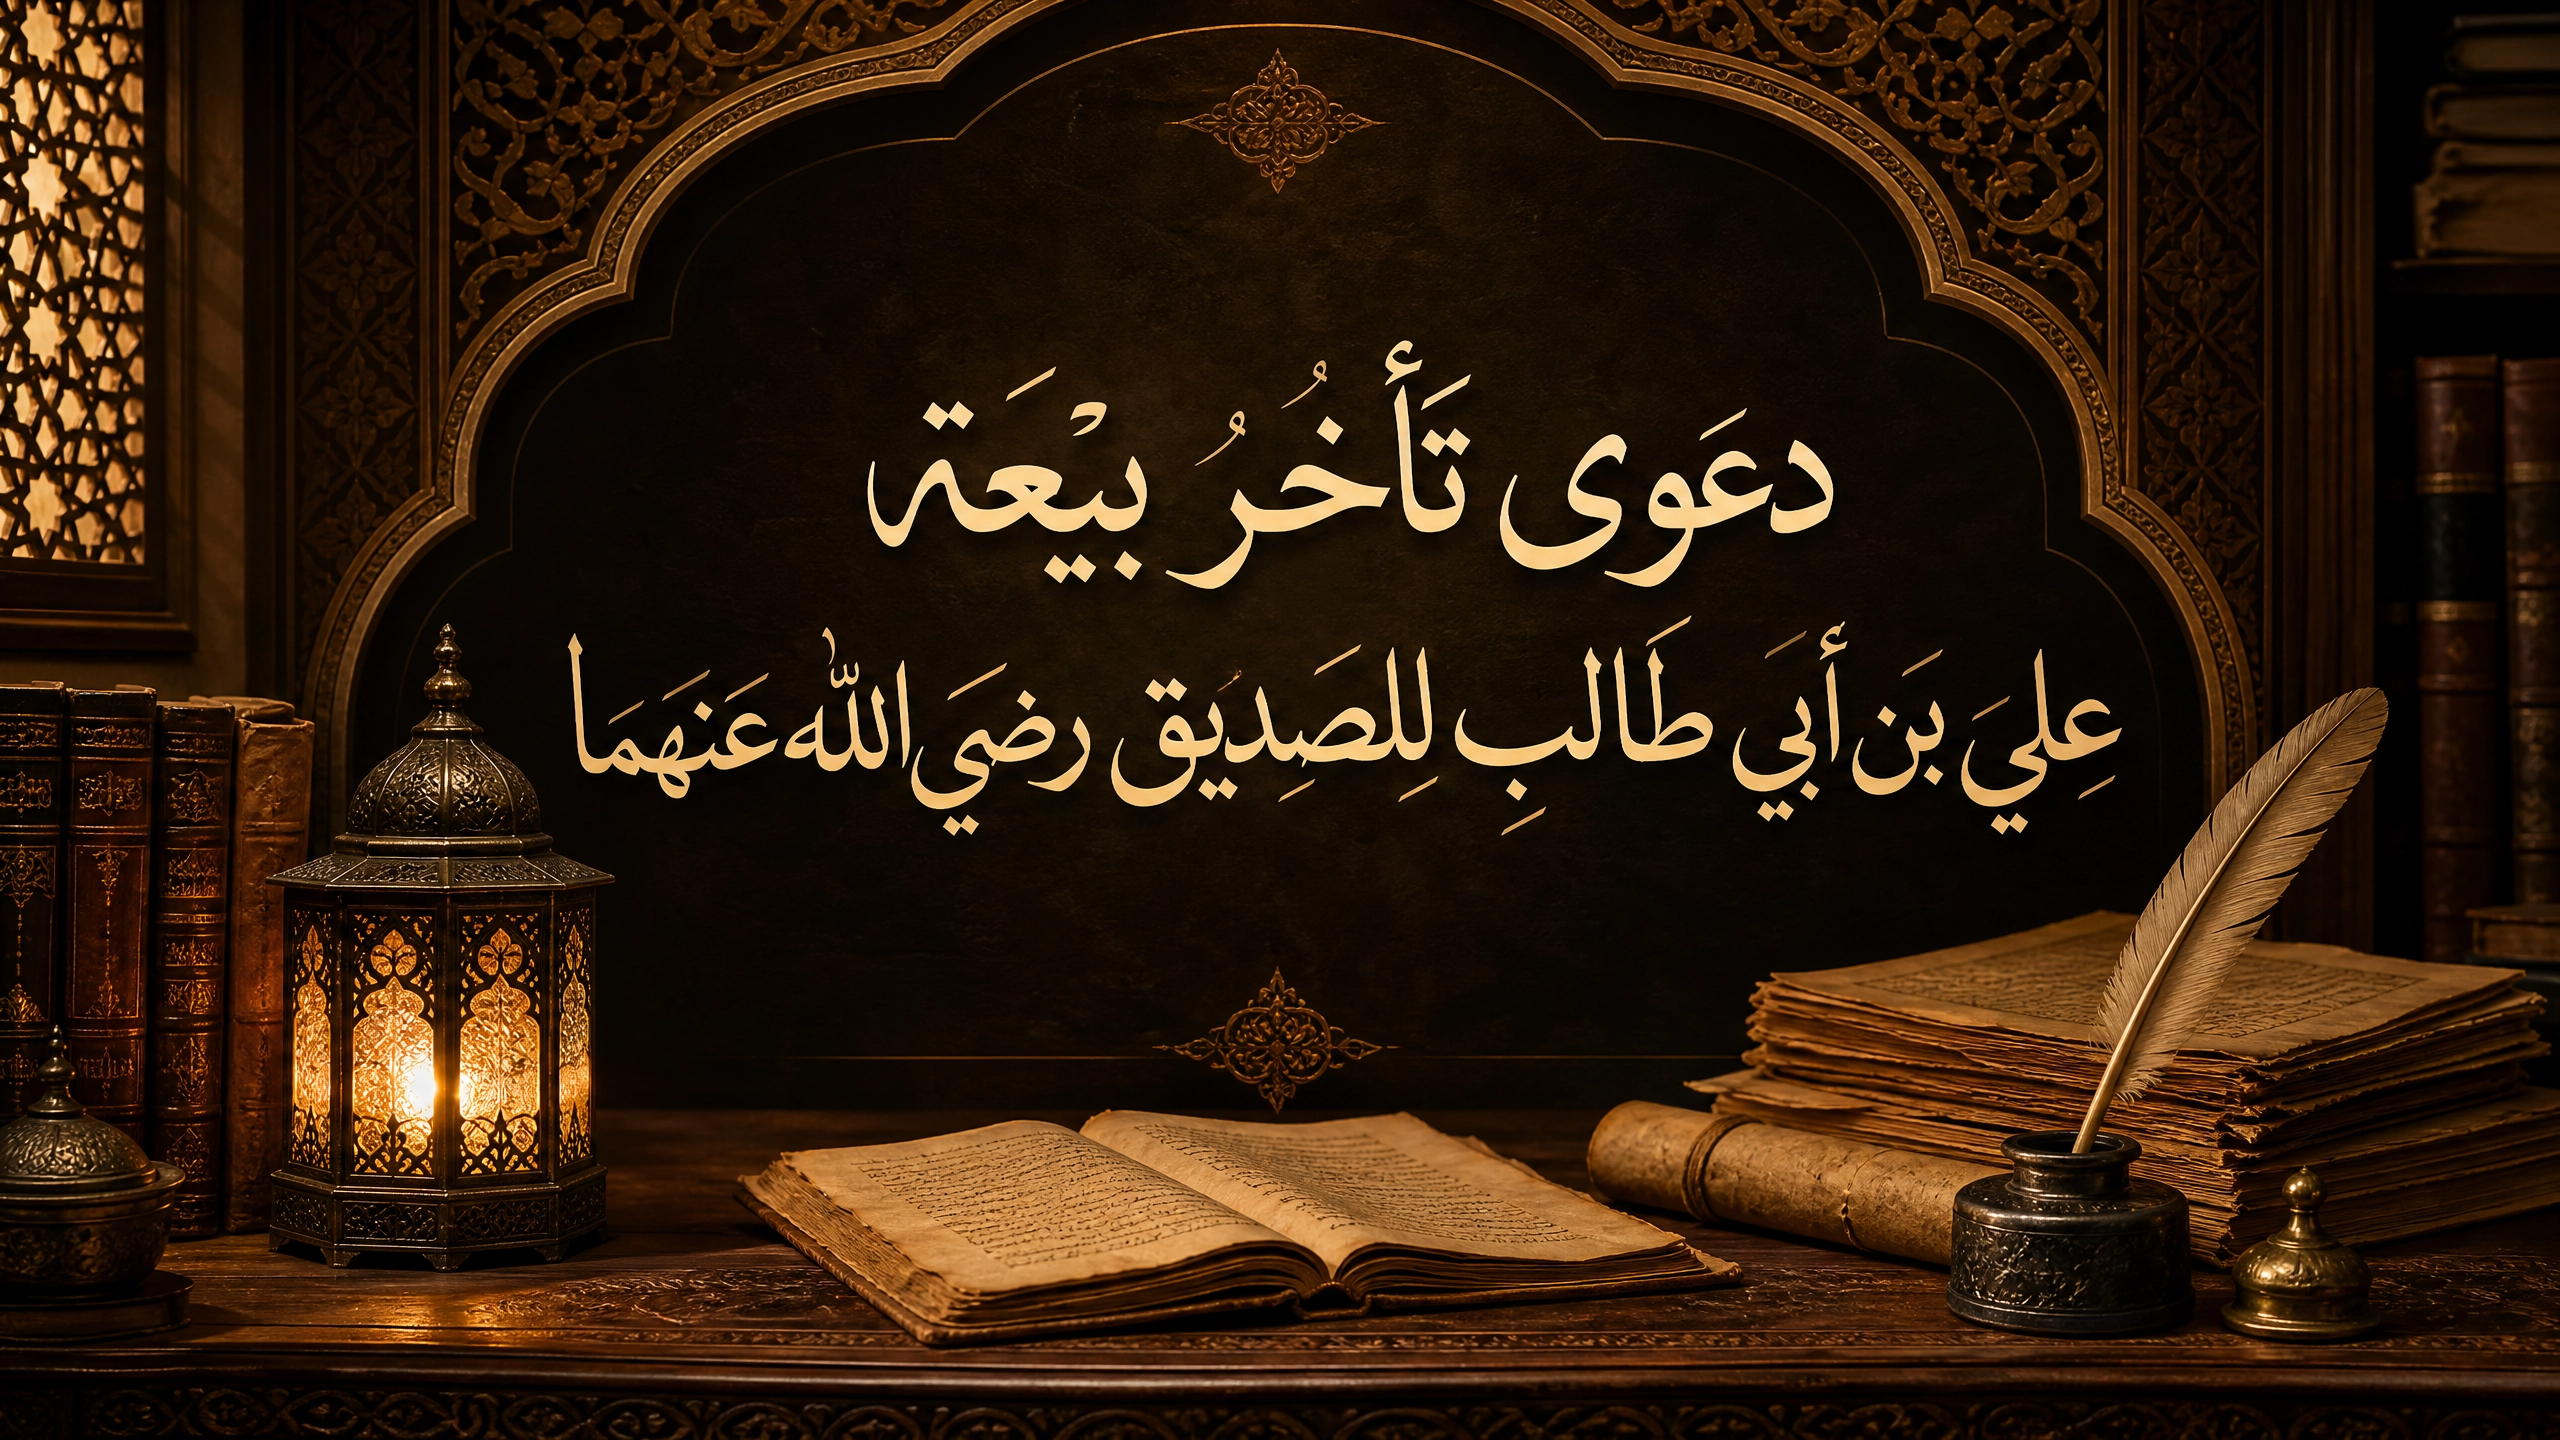 دعَوى تَأخُرُ بيْعَة
عِليَ بَن أَبي طَالبِ لِلصَدِيُق رضَيَ اللّٰه عَنَهَمَا